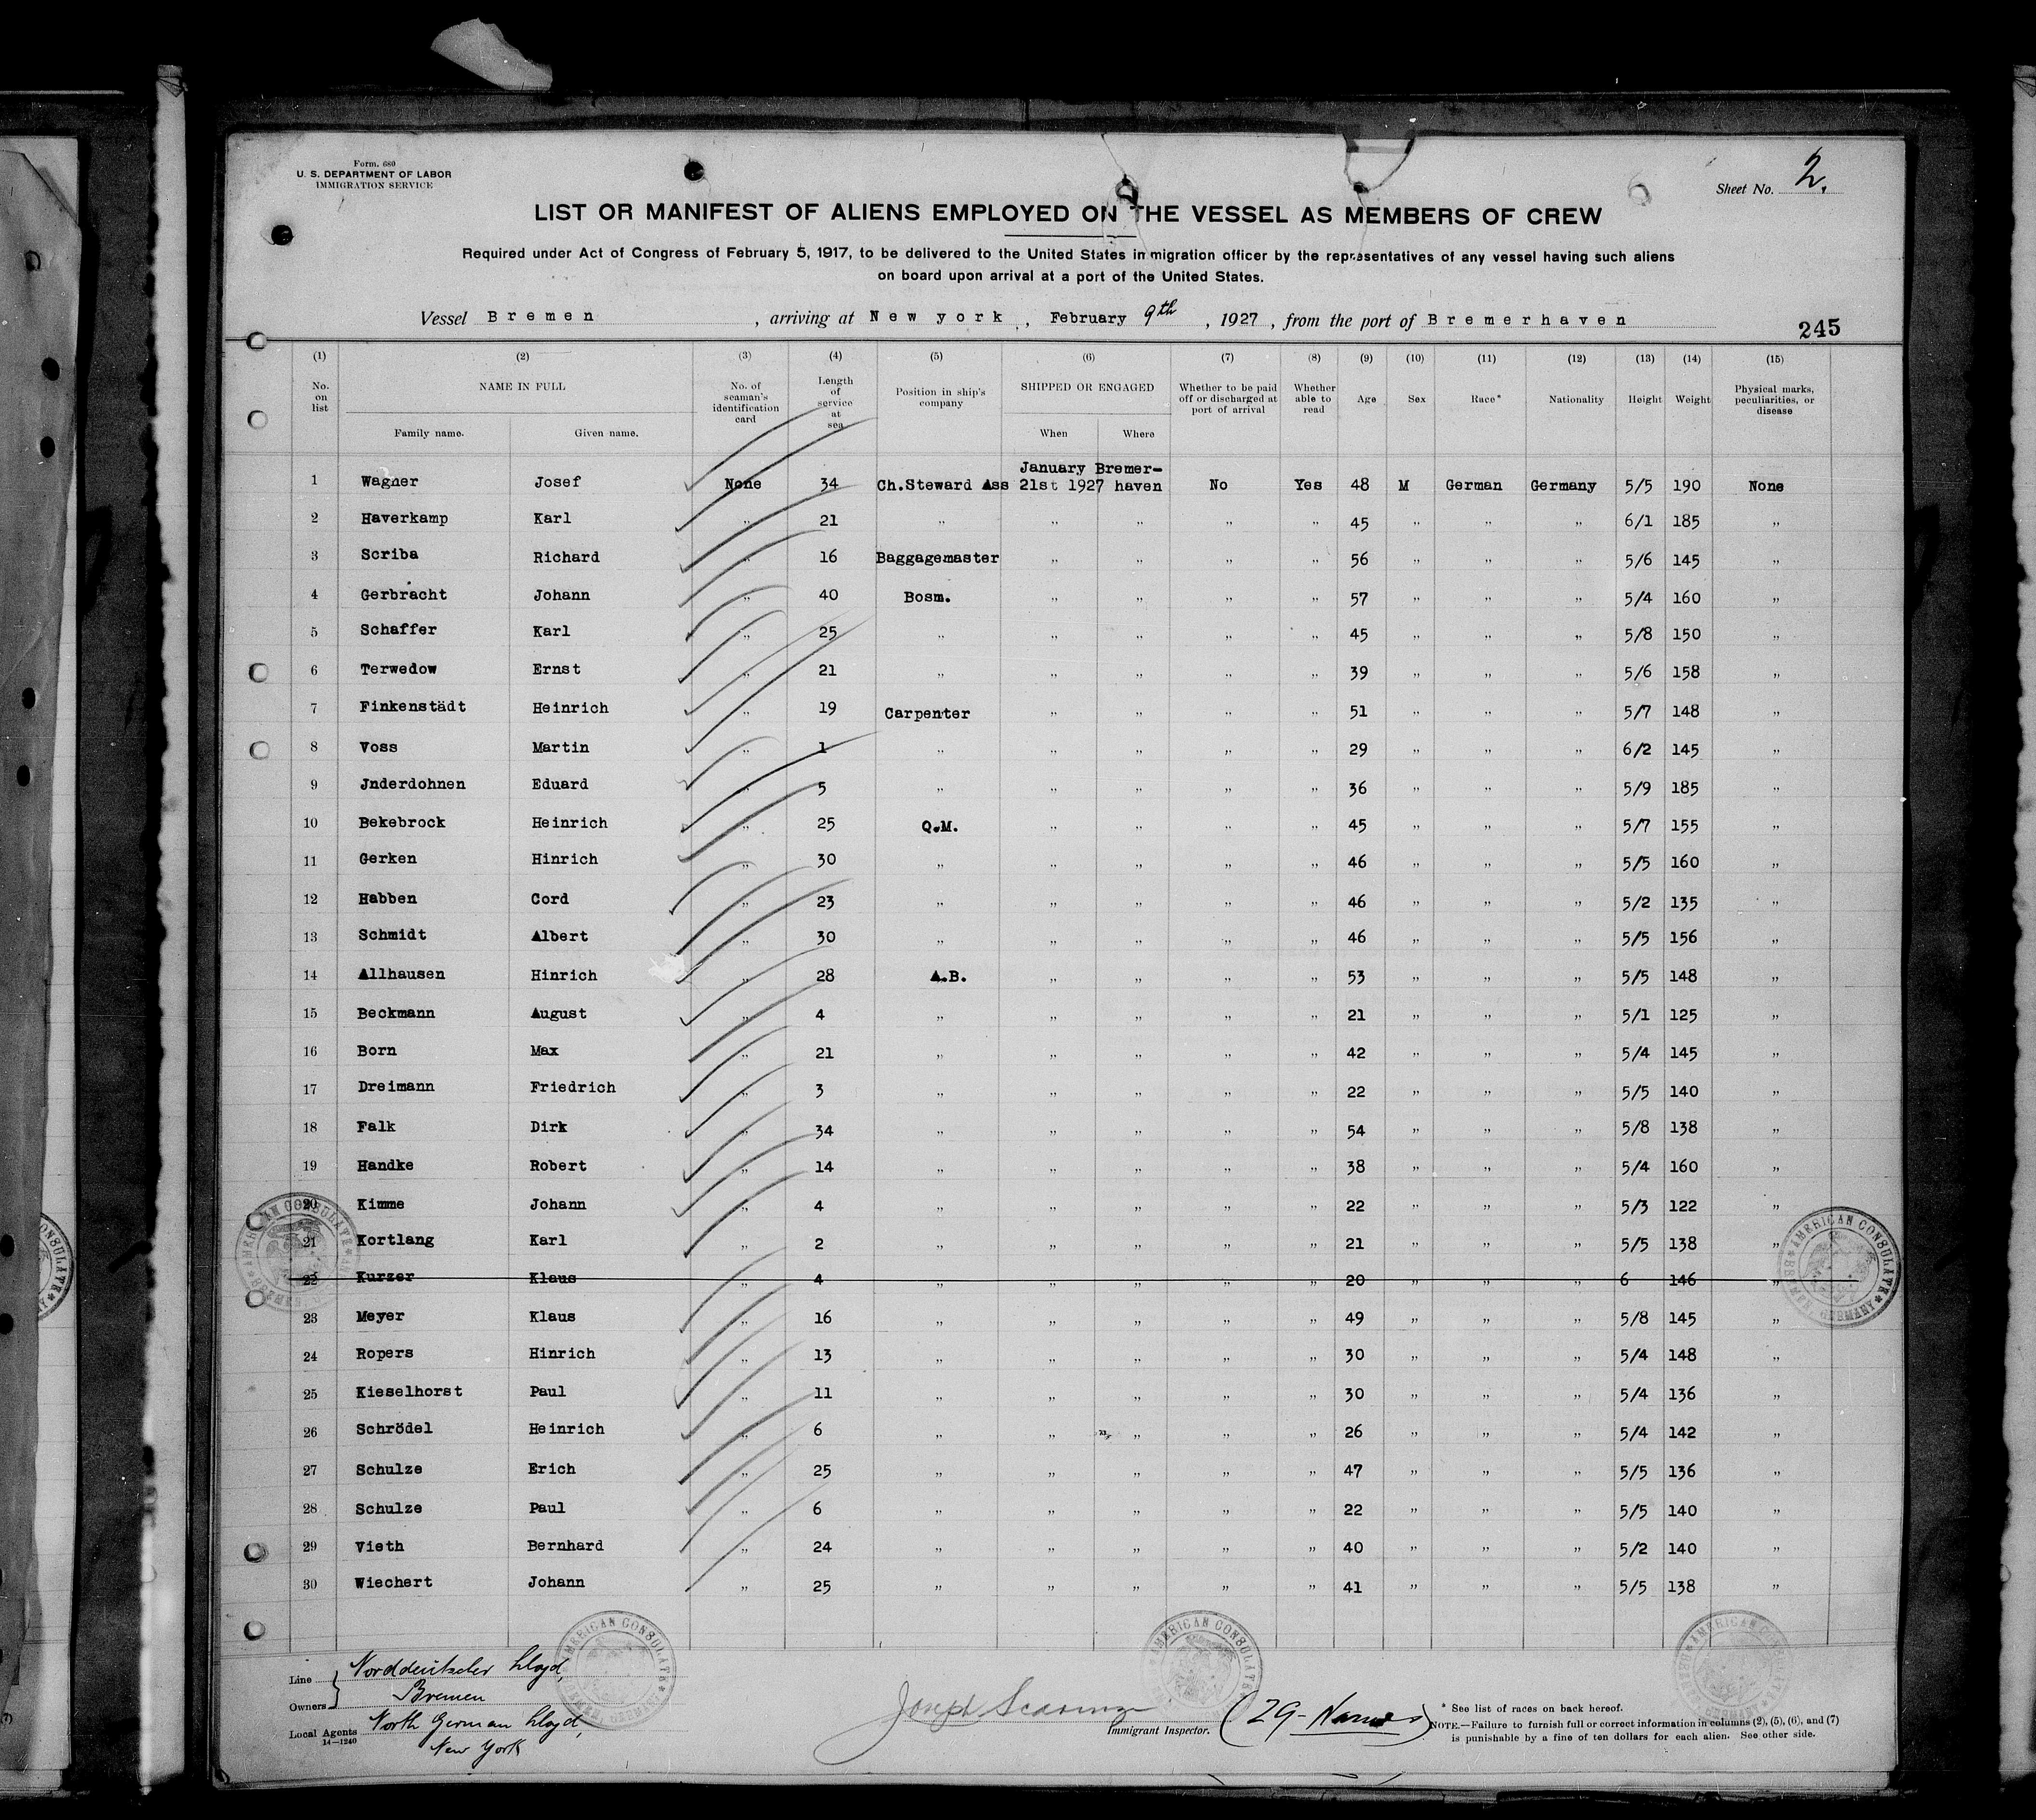 Form. 680
U. S. DEPARTMENT OF LABOR
IMMIGRATION SERVICE
Sheet No. 2.
LIST OR MANIFEST OF ALIENS EMPLOYED ON THE VESSEL AS MEMBERS OF CREW
Required under Act of Congress of February 5, 1917, to be delivered to the United States immigration officer by the representatives of any vessel having such aliens
on board upon arrival at a port of the United States.
Vessel Bremen, arriving at New york, February 9th, 1927, from the port of Bremerhaven
245
(1) (2) (3) (4) (5) (6) (7) (8) (9) (10) (11) (12) (13) (14) (15)
No. on list NAME IN FULL Family name. Given name. No. of seaman's identification card Length of service at sea Position in ship's company SHIPPED OR ENGAGED When Where Whether to be paid off or discharged at port of arrival Whether able to read Age Sex Race* Nationality Height Weight Physical marks, peculiarities, or disease
January Bremer-
1 Wagner Josef None 34 Ch.Steward Ass 21st 1927 haven No Yes 48 M German Germany 5/5 190 None
2 Haverkamp Karl " 21 " " " " " 45 " " " 6/1 185 "
3 Scriba Richard " 16 Baggagemaster " " " " 56 " " " 5/6 145 "
4 Gerbracht Johann " 40 Bosm. " " " " 57 " " " 5/4 160 "
5 Schaffer Karl " 25 " " " " " 45 " " " 5/8 150 "
6 Terwedow Ernst " 21 " " " " " 39 " " " 5/6 158 "
7 Finkenstädt Heinrich " 19 Carpenter " " " " 51 " " " 5/7 148 "
8 Voss Martin " 1 " " " " " 29 " " " 6/2 145 "
9 Jnderdohnen Eduard " 5 " " " " " 36 " " " 5/9 185 "
10 Bekebrock Heinrich " 25 Q.M. " " " " 45 " " " 5/7 155 "
11 Gerken Hinrich " 30 " " " " " 46 " " " 5/5 160 "
12 Habben Cord " 23 " " " " " 46 " " " 5/2 135 "
13 Schmidt Albert " 30 " " " " " 46 " " " 5/5 156 "
14 Allhausen Hinrich " 28 A.B. " " " " 53 " " " 5/5 148 "
15 Beckmann August " 4 " " " " " 21 " " " 5/1 125 "
16 Born Max " 21 " " " " " 42 " " " 5/4 145 "
17 Dreimann Friedrich " 3 " " " " " 22 " " " 5/5 140 "
18 Falk Dirk " 34 " " " " " 54 " " " 5/8 138 "
19 Handke Robert " 14 " " " " " 38 " " " 5/4 160 "
20 Kimme Johann " 4 " " " " " 22 " " " 5/3 122 "
21 Kortlang Karl " 2 " " " " " 21 " " " 5/5 138 "
22 Kurzer Klaus " 4 " " " " " 20 " " " 6 146 "
23 Meyer Klaus " 16 " " " " " 49 " " " 5/8 145 "
24 Ropers Hinrich " 13 " " " " " 30 " " " 5/4 148 "
25 Kieselhorst Paul " 11 " " " " " 30 " " " 5/4 136 "
26 Schrödel Heinrich " 6 " " " " " 26 " " " 5/4 142 "
27 Schulze Erich " 25 " " " " " 47 " " " 5/5 136 "
28 Schulze Paul " 6 " " " " " 22 " " " 5/5 140 "
29 Vieth Bernhard " 24 " " " " " 40 " " " 5/2 140 "
30 Wiechert Johann " 25 " " " " " 41 " " " 5/5 138 "
AMERICAN CONSULATE
AMERICAN CONSULATE
AMERICAN CONSULATE
AMERICAN CONSULATE
AMERICAN CONSULATE
Line Norddeutscher Lloyd,
Owners Bremen
Local Agents North German Lloyd,
14—1240 New York
Joseph
Immigrant Inspector.
(29-Names)
* See list of races on back hereof.
NOTE.—Failure to furnish full or correct information in columns (2), (5), (6), and (7)
is punishable by a fine of ten dollars for each alien. See other side.